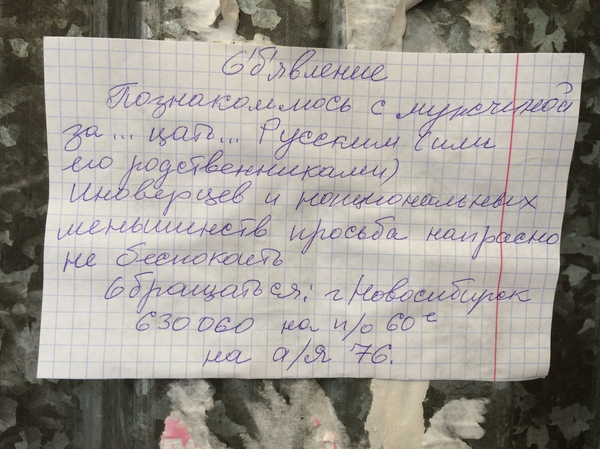 Объявление
Познакомлюсь с мужчиной
за... цать... Русским (или
его родственниками)
Иноверцев и национальных
меньшинств просьба напрасно
не беспокоить
Обращаться: г Новосибирск
630060 на п/о 60
на а/я 76.